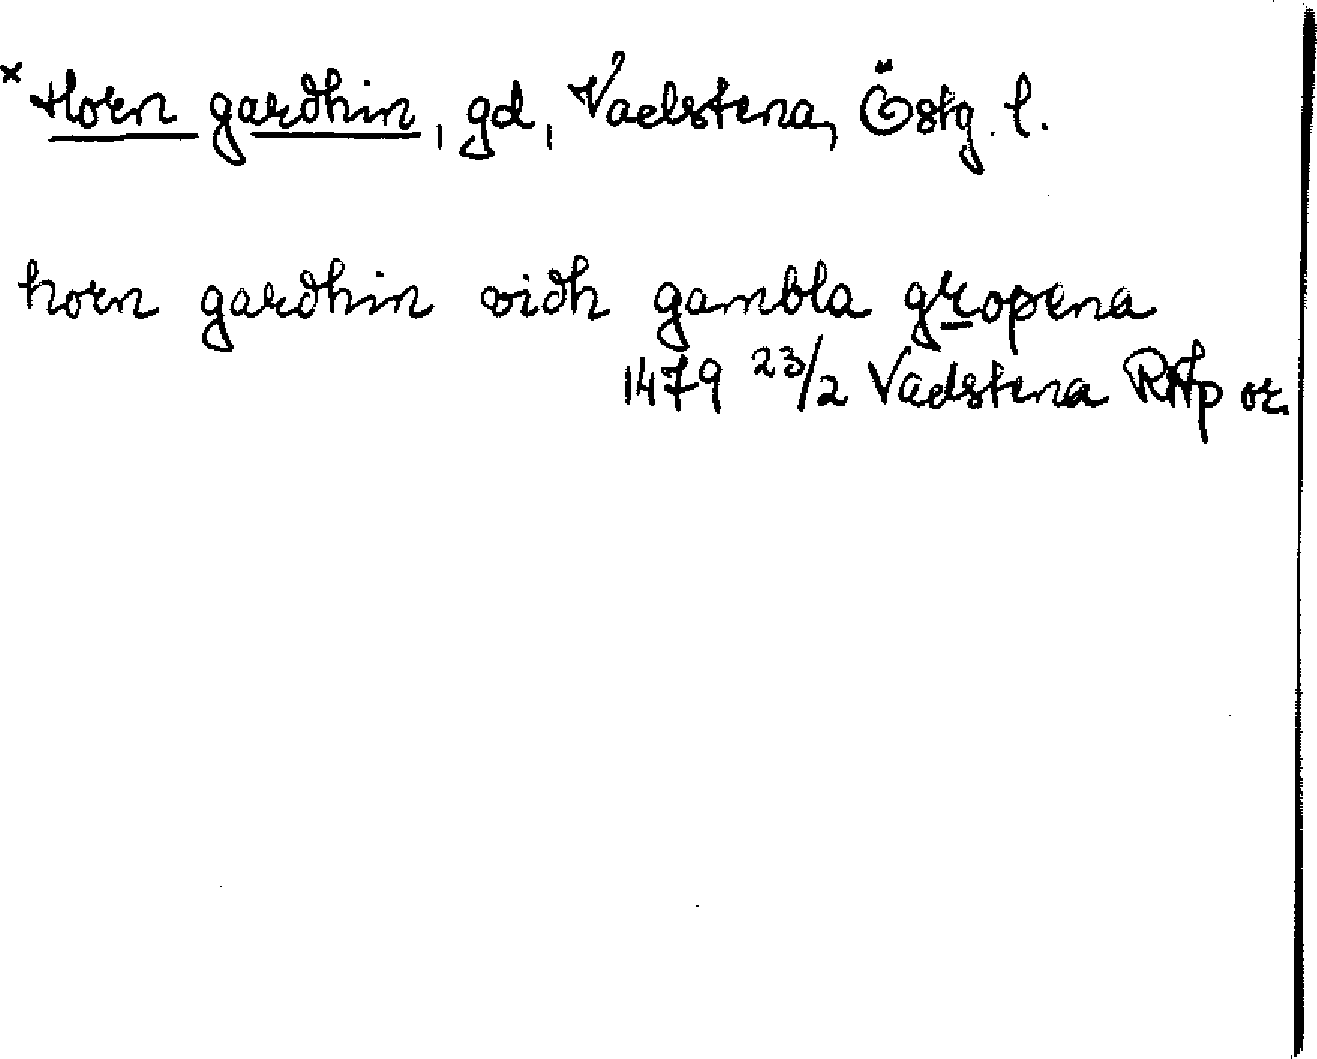 × Horn gardhin, gd, Vadstena, Östg. l.
horn gardhin vidh gambla gropena
1479 23/2 Vadstena RAp or.